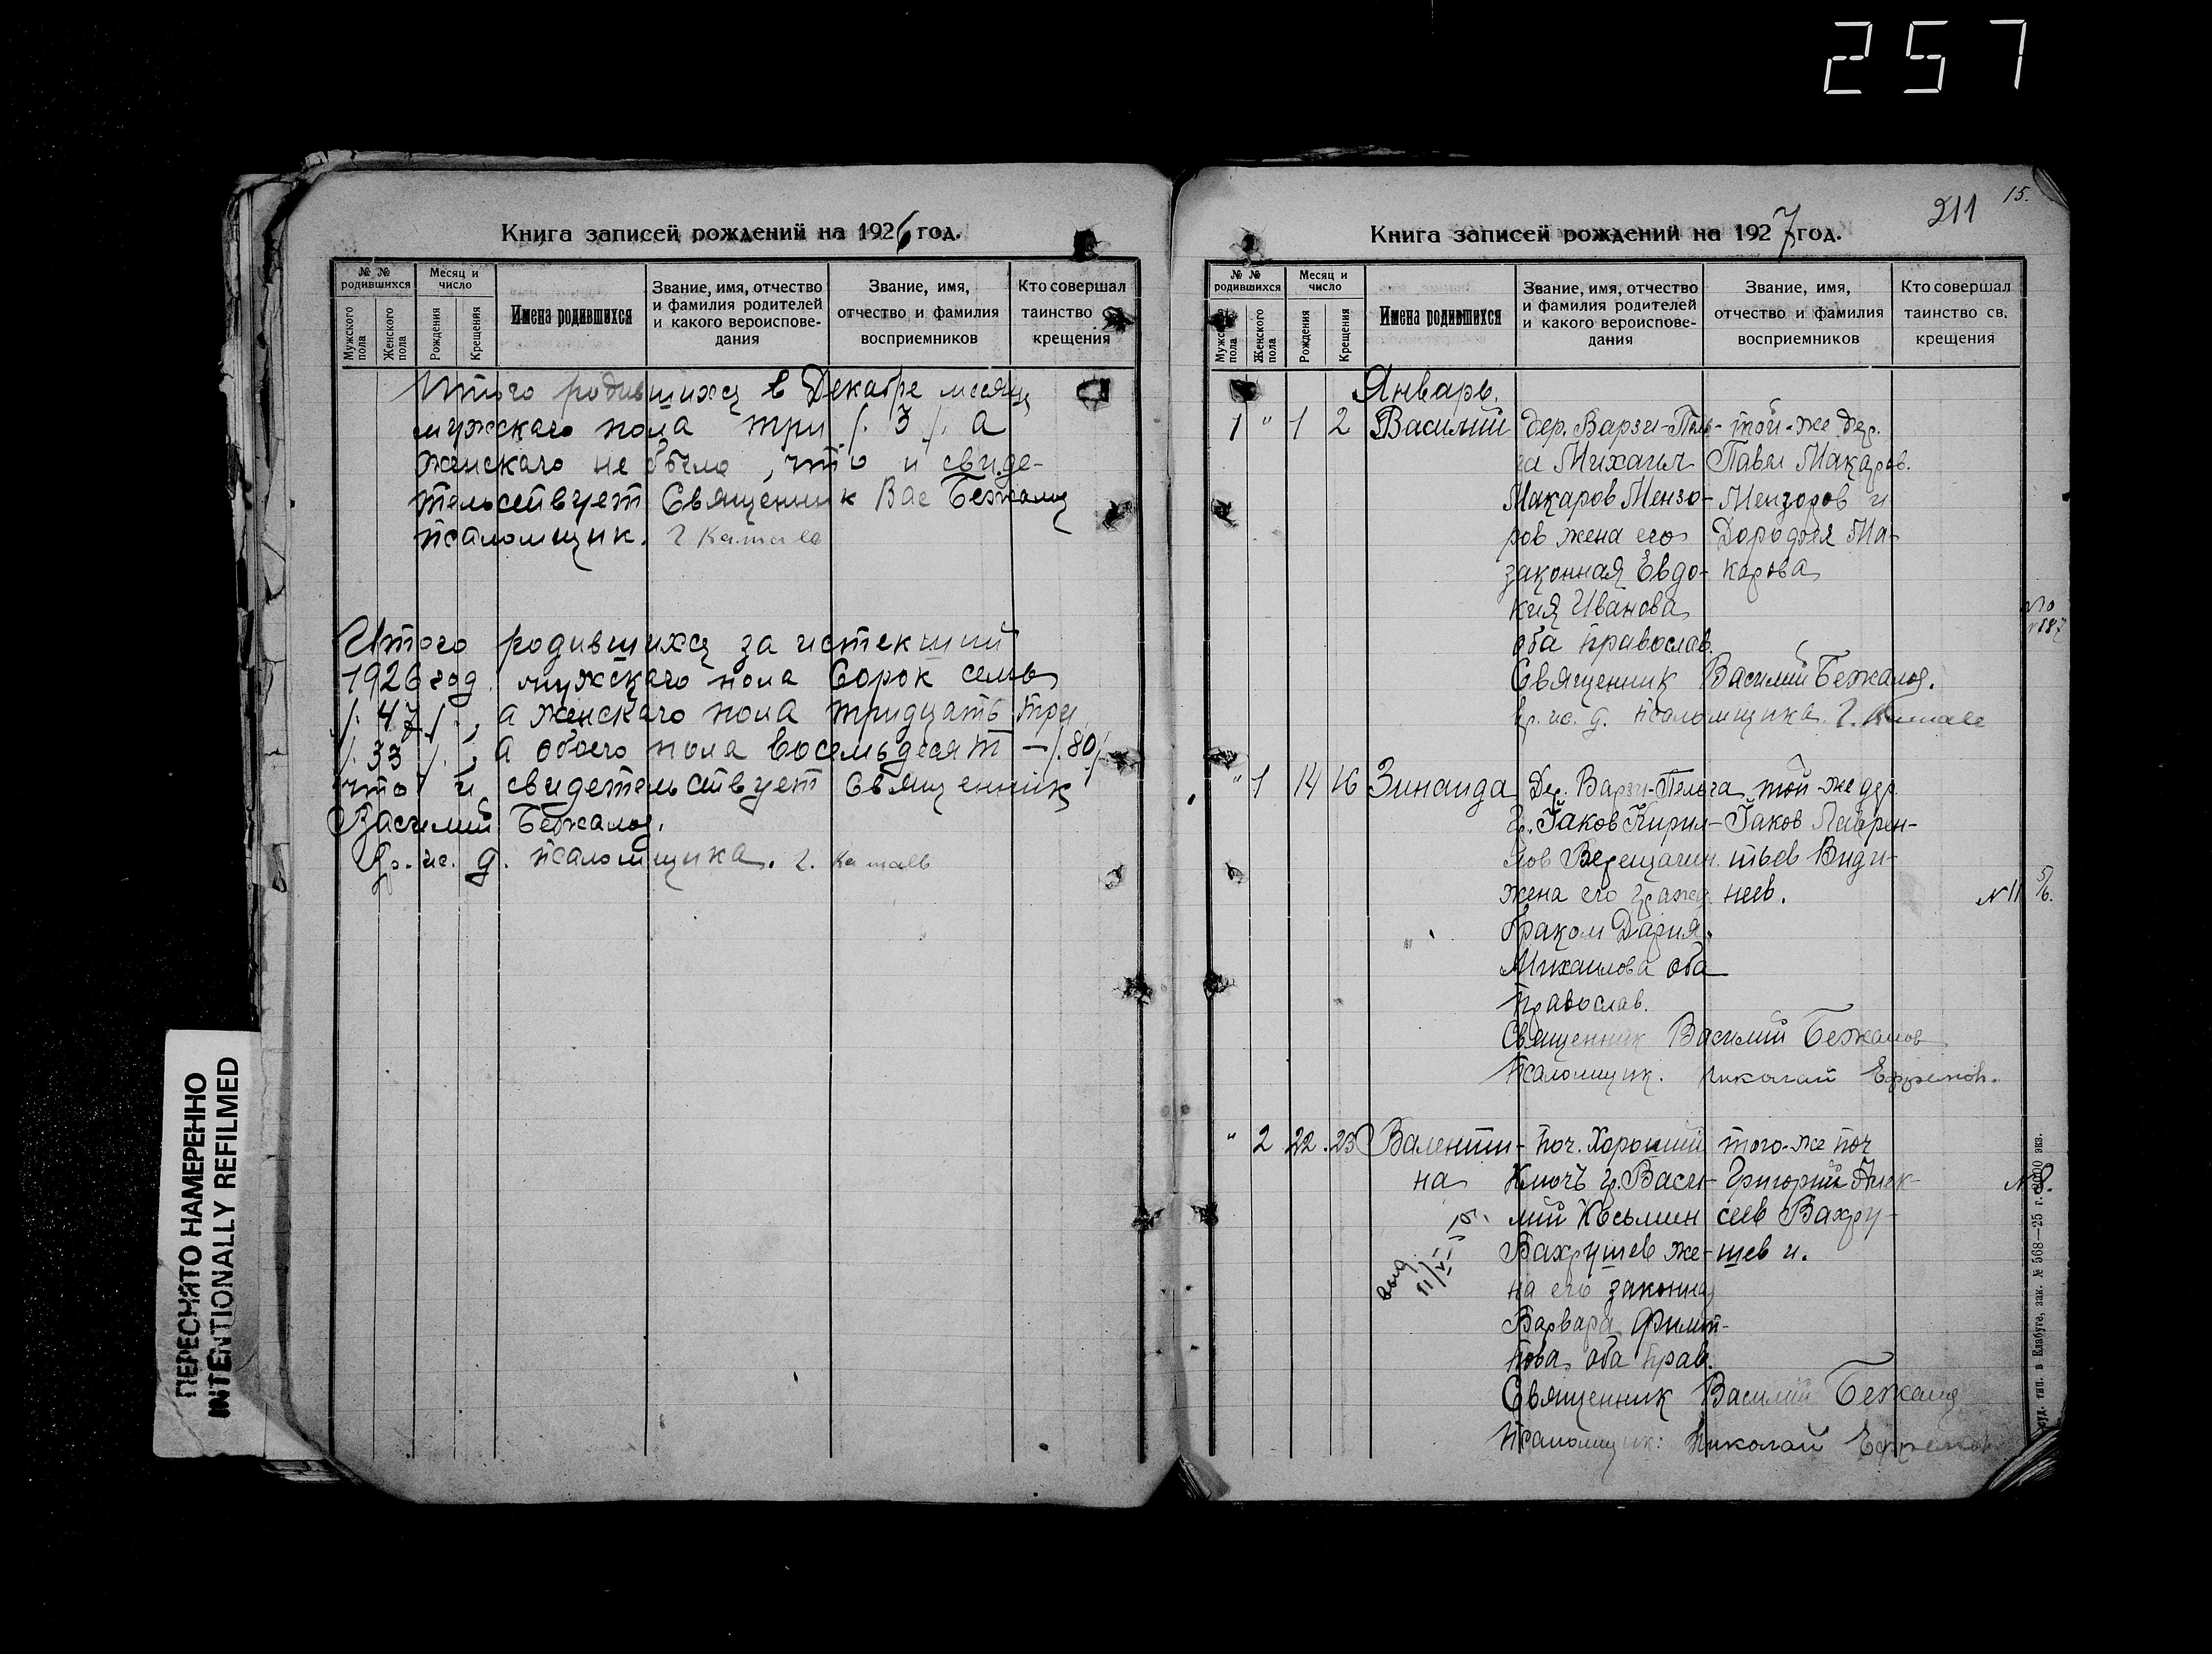 257
Книга записей рождений на 1926 год.
№ №
родившихся
Месяц и
число
Мужского
пола
Женского
пола
Рождения
Крещения
Имена родившихся
Звание, имя, отчество
и фамилия родителей
и какого вероиспове-
дания
Звание, имя,
отчество и фамилия
восприемников
Кто совершал
таинство
крещения
Итого родившихся в Декабре месяце
мужскаго пола три /. 3 /. а
женскаго не было, что и свиде-
тельствует Священник Вас Бежанов
псаломщик.
Итого родившихся за истекший
1926 год мужскаго пола сорок семь
/. 47 /., а женскаго пола тридцать три
/. 33 /., а обоего пола восемьдесят — /. 80 /.
что и свидетельствует Священник
Василий Бежанов.
Вр. ис. д. псаломщика.
ПЕРЕСНЯТО НАМЕРЕННО
INTENTIONALLY REFILMED
211
15.
Книга записей рождений на 1927 год.
№ №
родившихся
Месяц и
число
Мужского
пола
Женского
пола
Рождения
Крещения
Имена родившихся
Звание, имя, отчество
и фамилия родителей
и какого вероиспове-
дания
Звание, имя,
отчество и фамилия
восприемников
Кто совершал
таинство св.
крещения
Январь.
1 " 1 2 Василий дер. Варзи-Пель- той-же дер.
га Михаил Павел Макаров.
Макаров Мензо- Мензоров и
ров жена его Дорофея Ма-
законная Евдо- карова
кия Иванова
оба православ.
Священник Василий Бежанов.
Вр. ис. д. псаломщика.
" 1 14 16 Зинаида Дер. Варзи-Пельга той-же дер.
гр. Яков Кирил- Яков Лаврен-
лов Верещагин тьев Види-
жена его гражд неев.
браком Дария
Михаилова оба
православ.
№ 11
Священник Василий Бежанов
Псаломщик. Николай Ефремов.
" 2 22 23 Валенти- поч. Хороший того-же поч
на Ключъ гр. Васи- Григорий Алек-
лий Косьмин сеев Вахру-
Вахрушев же- шев и.
на его законная
Варвара
оба прав.
№ 8.
Священник Василий Бежанов
Псаломщик: Николай Ефремов
тип. в Елабуге, зак. № 568—25 г. 2000 экз.